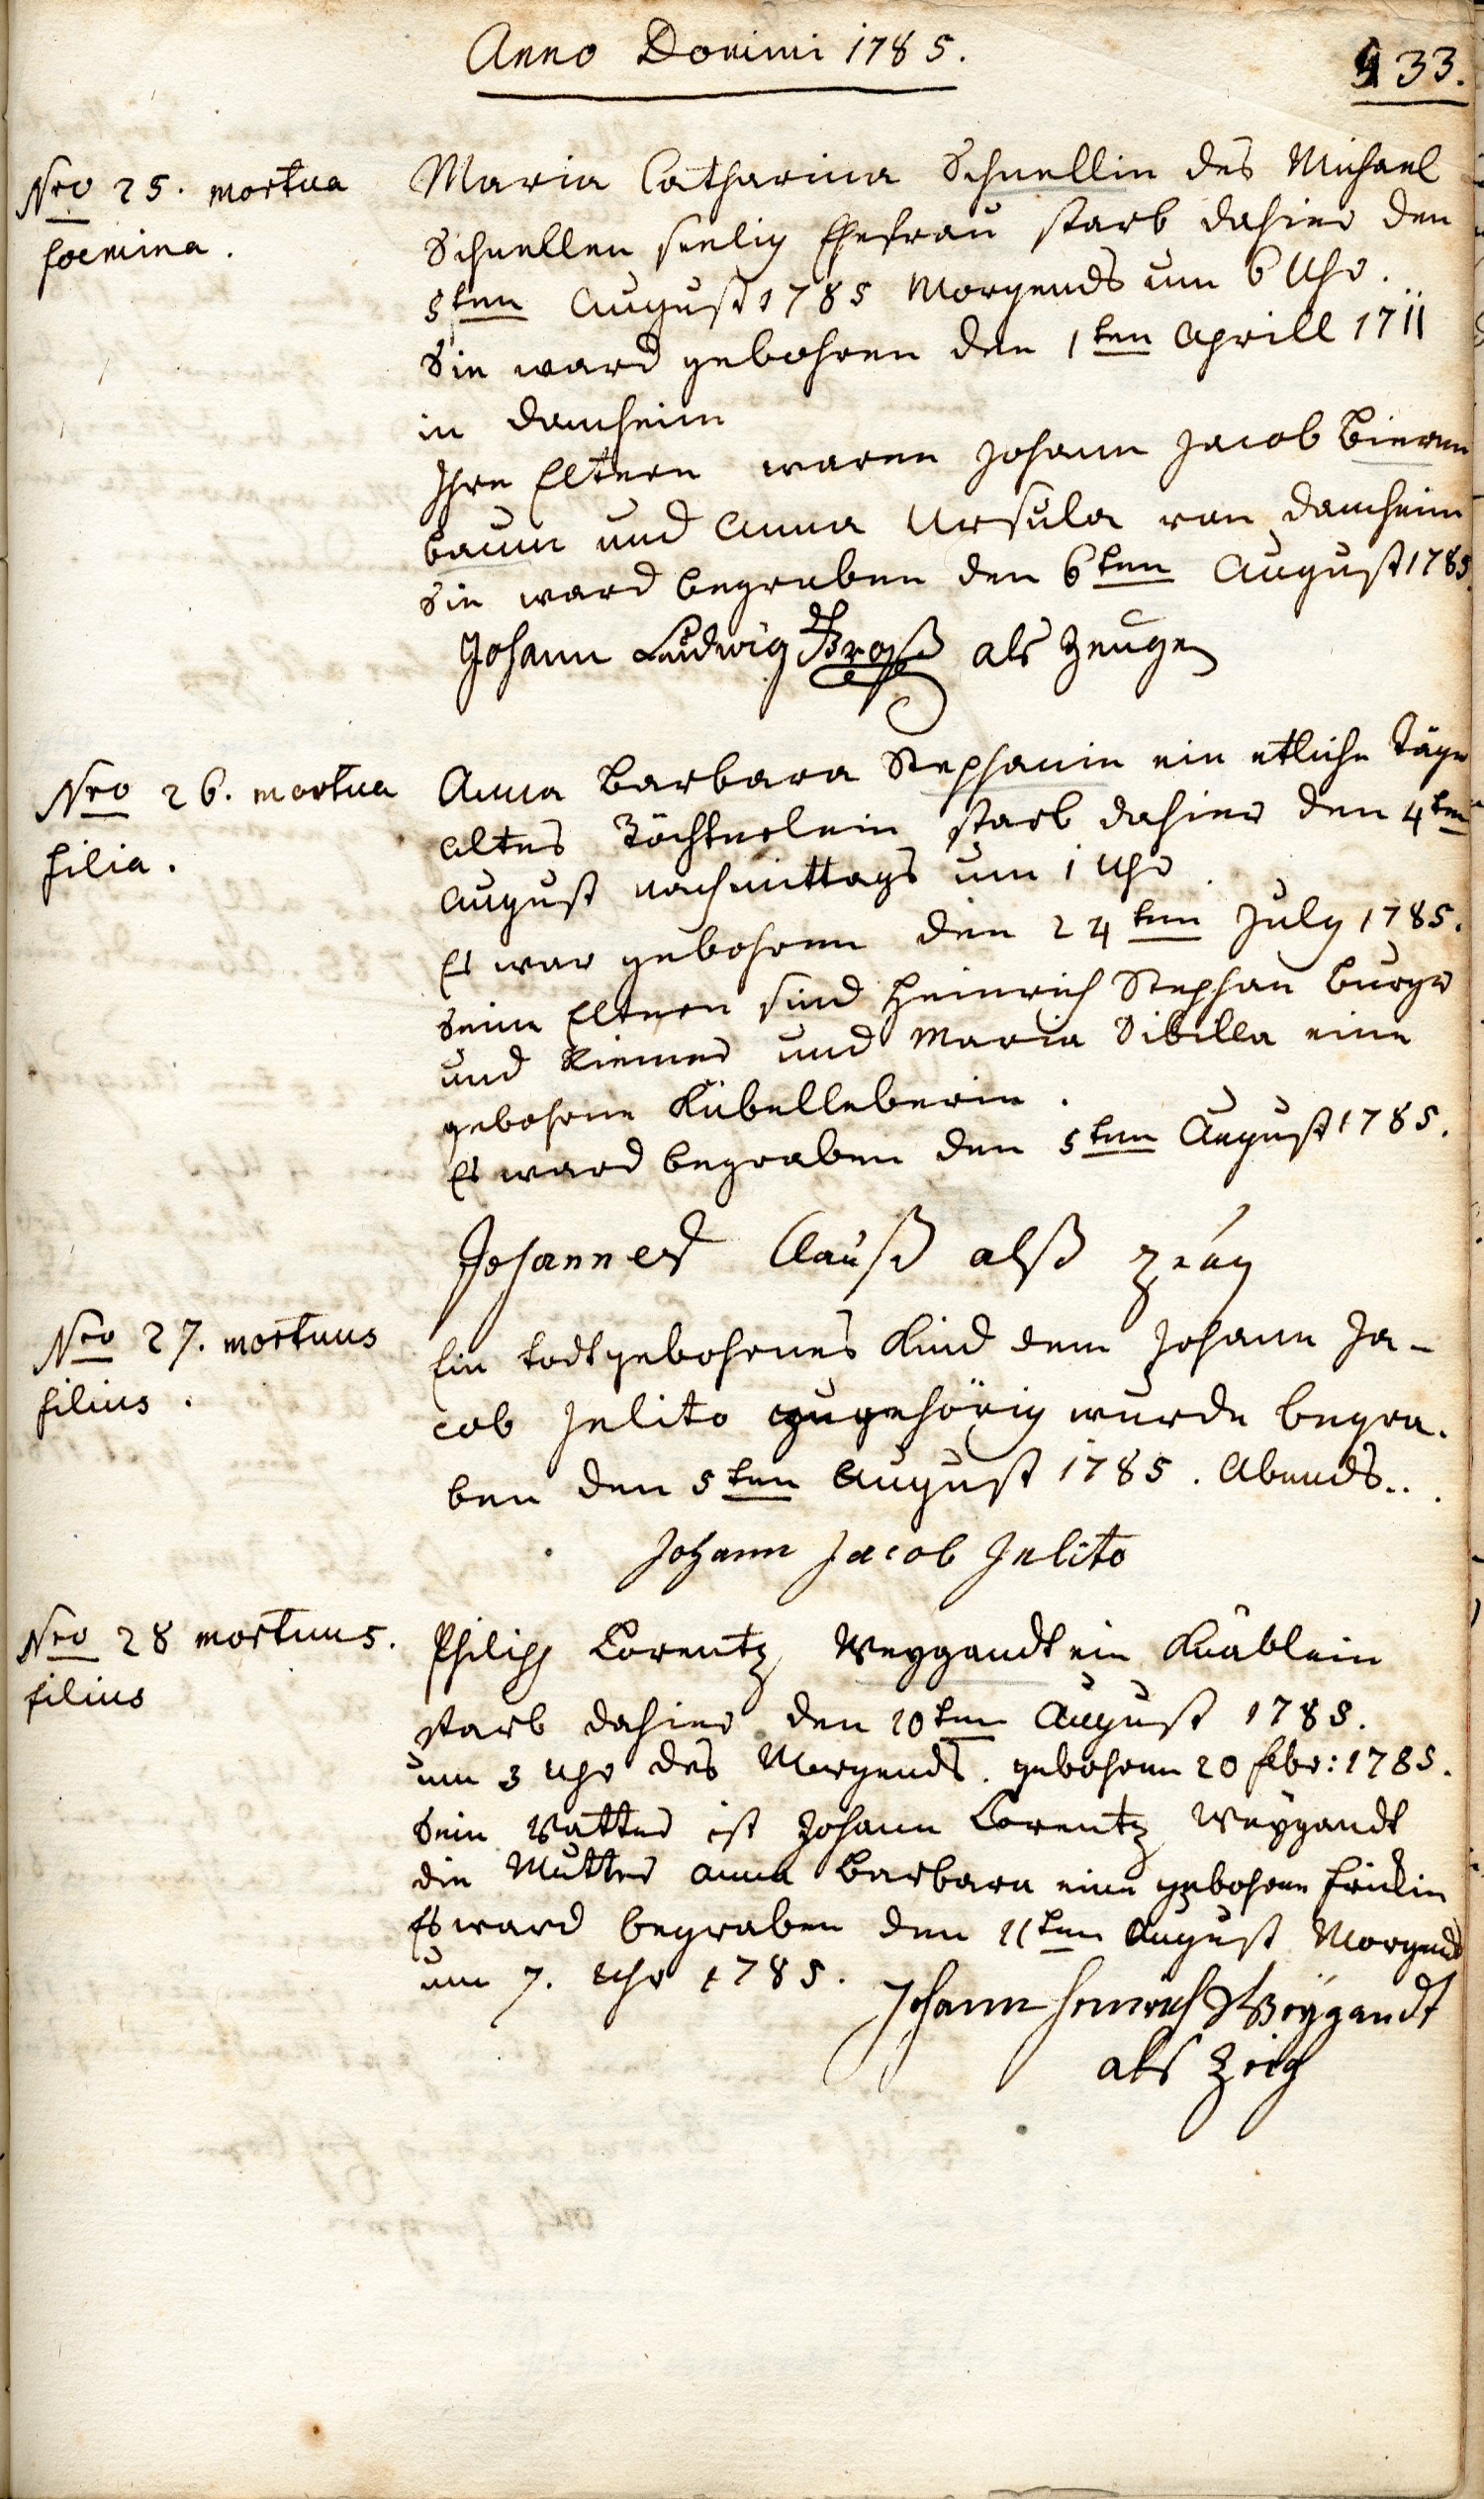 Anno Domini 1785.
433.
Nro 25. mortua
foemina.
Maria Catharina Schnellin des Michael
Schnellen seelig Ehefrau starb dahier den
5ten August 1785 Morgends um 6 Uhr.
Sie ward gebohren den 1ten Aprill 1711
in Damheim
Ihre Eltern waren Johann Jacob Bieren
baum und Anna Ursula von Damheim
Sie ward begraben den 6ten August 1785.
Johann Ludwig als Zeugen
Nro 26. mortua
filia.
Anna Barbara Stephanin ein etliche Täge
altes Töchterlein starb dahier den 4ten
August nachmittags um 1 Uhr.
Es war gebohren den 24ten July 1785.
Seine Eltern sind Heinrich Stephan Burger
und Kiemer und Maria Sibilla eine
gebohrne Kübelleberin.
Es ward begraben den 5ten August 1785.
Johannes Clauß alß zeug
Nro 27. mortuus
filius.
Ein todtgebohrnes Kind dem Johann Ja-
cob Jelito zugehörig wurde begra-
ben den 5ten August 1785. Abends..
Johann Jacob Jelito
Nro 28 mortuus.
filius
Philipp Lorentz Weygandt ein Knäblein
starb dahier den 10ten August 1785.
um 3 Uhr des Morgends. gebohren 20 febr: 1785.
Sein Vatter ist Johann Lorentz Weygandt
die Mutter anna Barbara eine gebohrne Frickin
Es ward begraben den 11ten August Morgends
um 7. Uhr 1785.
Johann Henrich Weygandt
als Zeig